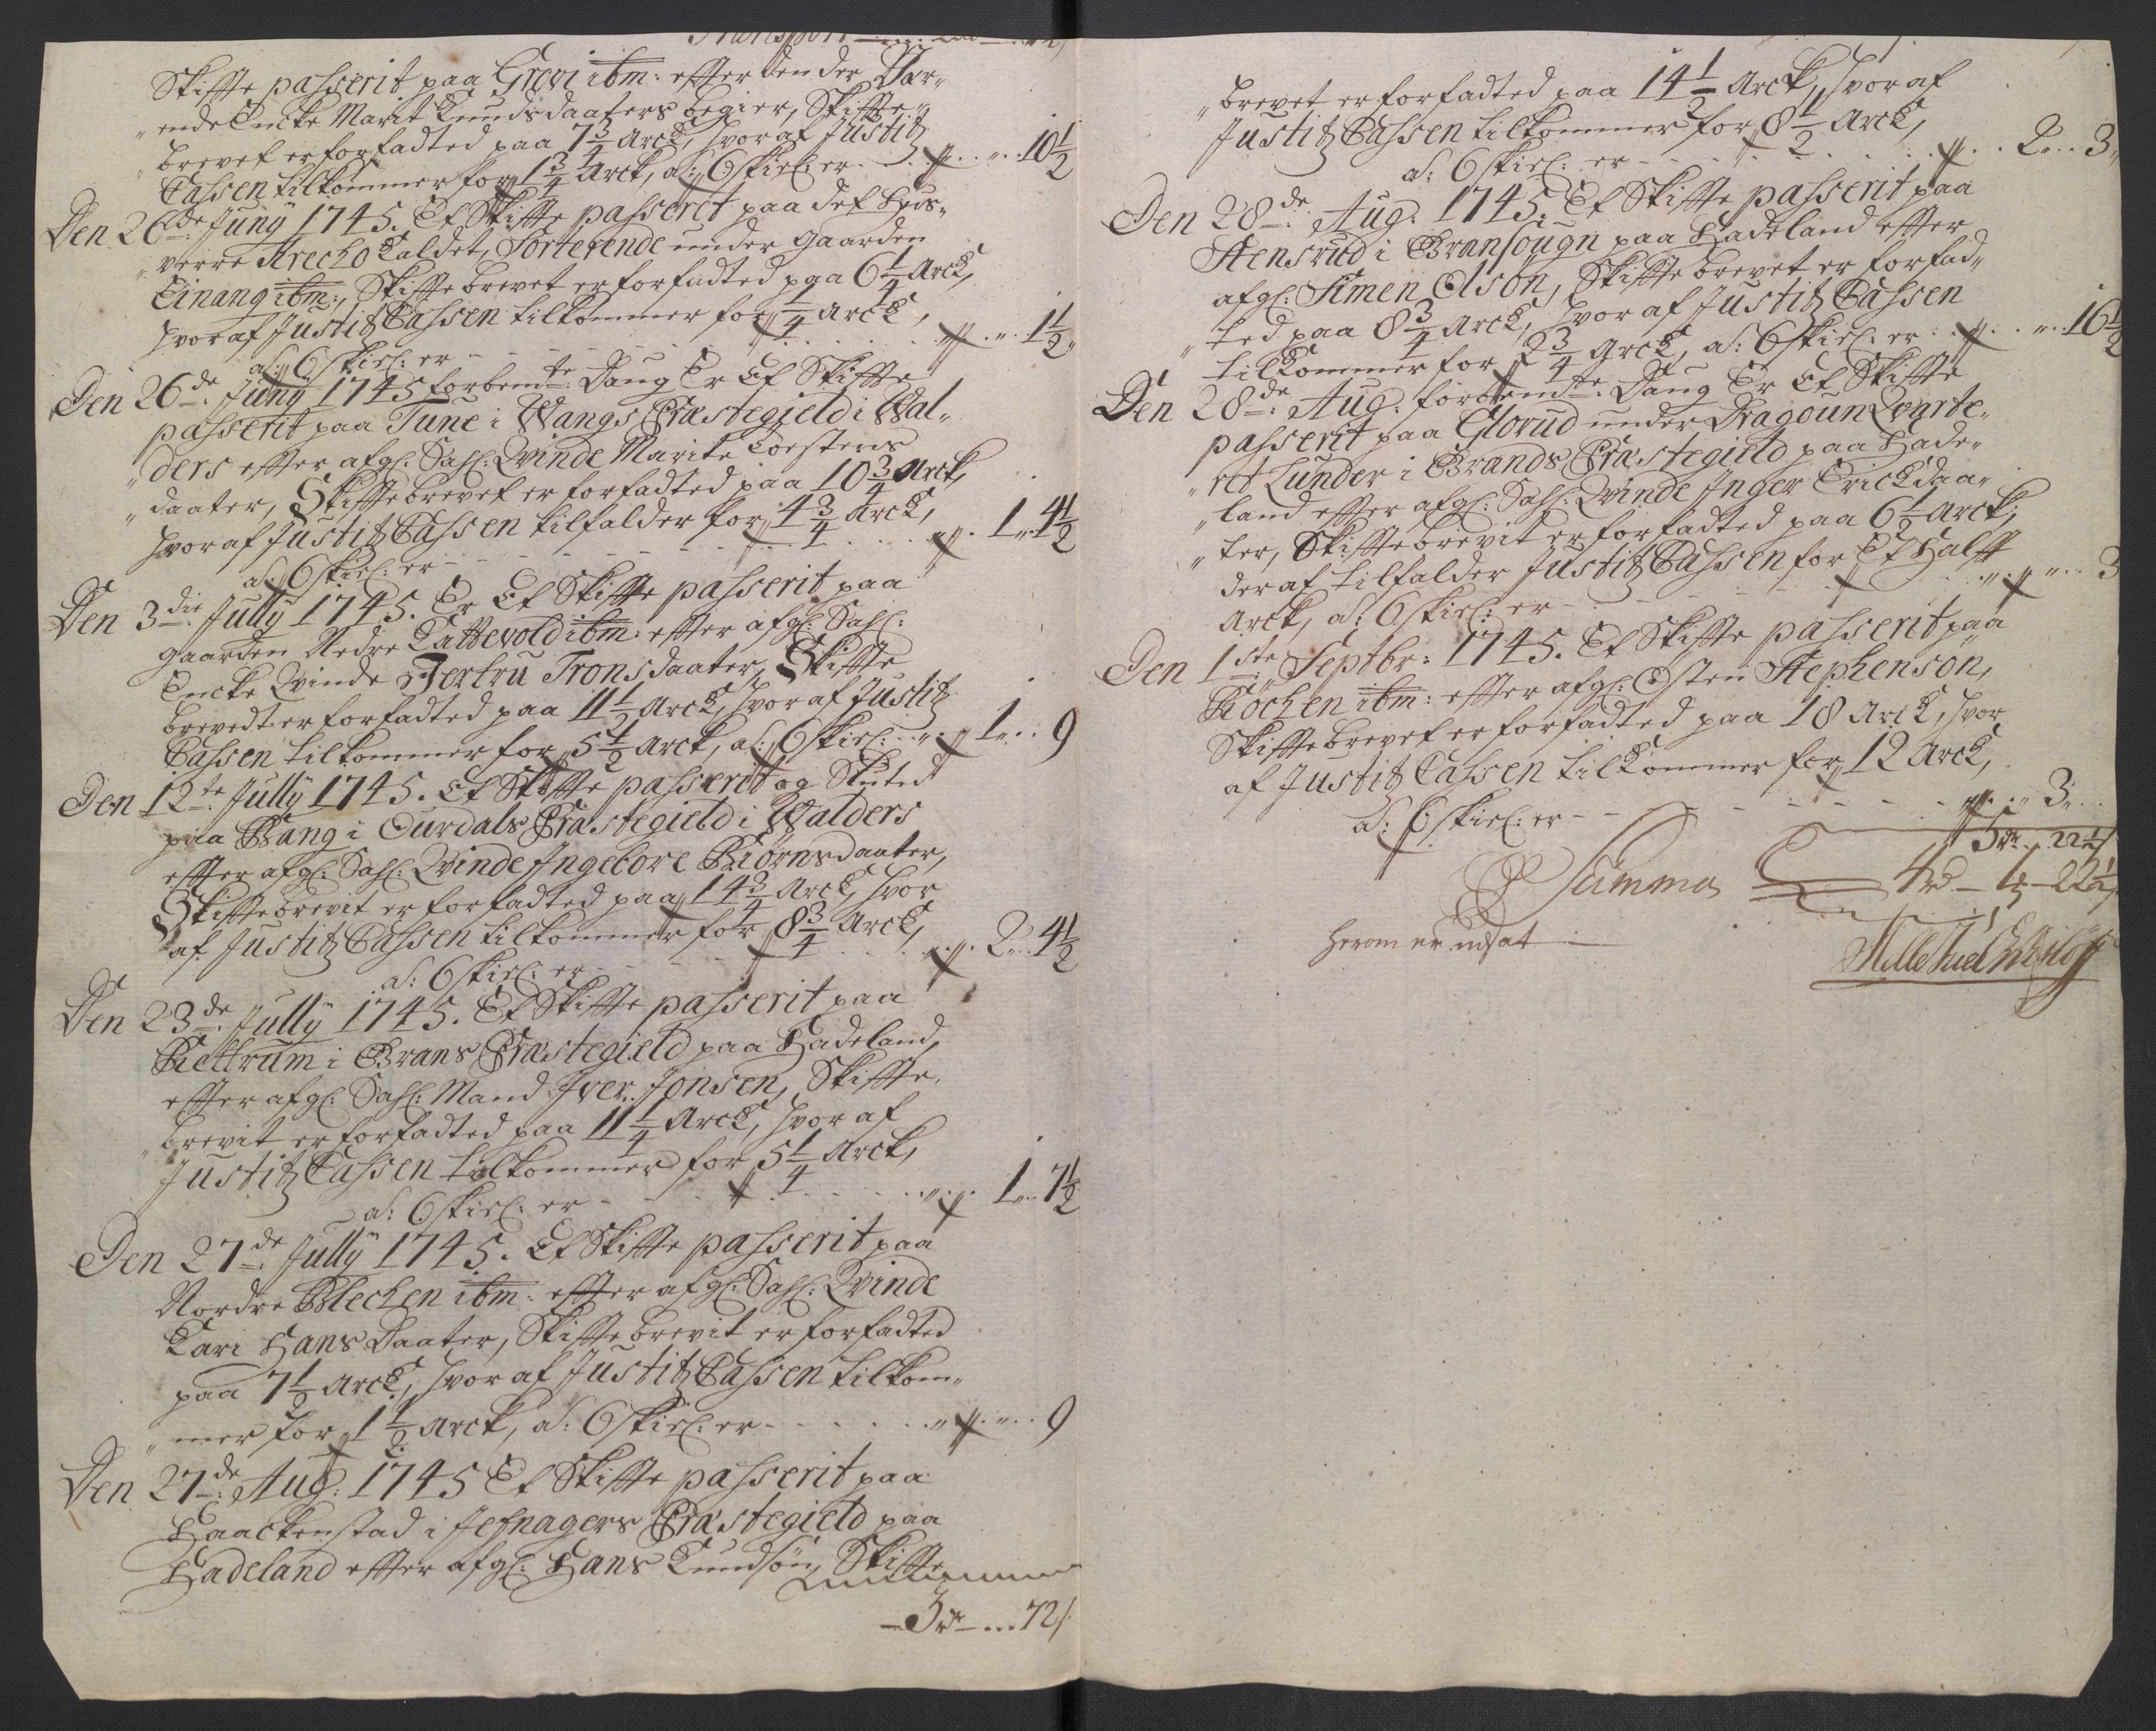 Transport
Skiffte passerit paa Grövi ibm: effter den der Var-
„ende Encke Marit Knudsdaaters begier, Skiffte„
„brevet er forfadted paa 7 3/4 Arck, hvoraf Justitz
Cassen tilkommer for 1 3/4 Arck, a: 6 skiel: er - - - „ . . „ . . 10 1/2
Den 26de Juny 1745. Et Skiffte passeret paa det Huus-
„verre Kaldet, Sorterende under gaarden
Einang ibm:, Skiffte brevet er forfadted paa 6 1/4 Arck,
hvoraf Justitz Cassen tilkommer for 1/4 Arck,
a: 6 skiel: er - - - „ . . „ . . 1 1/2 „
Den 26de Juny 1745 forbemte: Daug Er Et Skiffte
passerit paa Tune i Wangs Præstegield i Wal-
„ders effter afgl: Sahl: Qvinde Marite Toestens
„daater, Skifftebrevet er forfadted paa 10 3/4 Arck,
hvoraf Justitz Cassen tilfalder for 4 3/4 Arck,
a: 6 skiel: er - - - „ . 1 „ 4 1/2
Den 3die Jully 1745. Er Et Skiffte passerit paa
gaarden Nedre Kattevold ibm: effter afgl: Sahl:
Encke Qvinde Jertru Tronsdaater, Skiffte
brevedt er forfadted paa 11 1/2 Arck, hvoraf Justitz
Cassen tilkommer for 5 1/2 Arck, a: 6 skiel: . . „ . „ 1 „ . . 9
Den 12te Jully 1745. Et Skiffte passerit og Sluted
paa Bang i Ourdals Præstegield i Walders
effter afgl: Sahl: Qvinde Ingebore Biörnsdaater,
Skifftebrevit er forfadted paa 14 3/4 Arck, hvor
af Justitz Cassen tilkommer for 8 3/4 Arck,
a: 6 skiel: er - - - „ . „ . 2 „ . . 4 1/2
Den 23de Jully 1745. Et Skiffte passerit paa
Kiettrum i Brans Præstegield paa Hadeland,
effter afgl: Sahl: Mand Iver Jonsen, Skiffte
„brevit er forfadted paa 11 1/4 Arck, hvoraf
Justitz Cassen tilkommer for 5 1/4 Arck,
a: 6 skiel: er - - - „ . „ . 1 „ . . 7 1/2
Den 27de Jully 1745. Et Skiffte passerit paa
Nordre Blechen ibm: effter afgl: Sahl: Qvinde
Kari Hans Daater, Skifftebrevit er forfadted
paa 7 1/2 Arck, hvoraf Justitz Cassen tilkom-
„mer for 1 1/2 Arck, a: 6 skiel: er - - - „ . „ . . 9
Den 27de Aug: 1745 Et Skiffte passerit paa
Haackenstad i Jefnagers Præstegield paa
Hadeland effter afgl: Hans Knudsön, Skiffte
- 3 rdr - . . . 72 s
„brevet er forfadted paa 14 1/2 Arck, hvoraf
Justitz Cassen tilkommer for 8 1/2 Arck,
a: 6 skiel: er - - - „ . . 2 „ . . 3 „
Den 28de Aug: 1745. Et Skiffte passerit paa
Stensrud i Bransougn paa Hadeland effter
afgl: Simen Olsön, Skiffte brevet er forfad-
„ted paa 8 3/4 Arck, hvoraf Justitz Cassen
tilkommer for 2 3/4 Arck, a: 6 skiel: er . . „ . . „ . . 16 1/2
Den 28de Aug: forbemte: Daug Er Et Skiffte
passerit paa Glorud under Dragoun Qvarte-
„ret Lunder i Brands Præstegield paa Hade-
„land effter afgl: Sahl: Qvinde Inger Erickdaa-
„ter, Skifftebrevit er forfadted paa 6 1/2 Arck,
der af tilfalder Justitz Cassen for Et Halft
Arck, a: 6 skiel: er - - - „ . „ . „ . . 3
Den 1ste Septbr: 1745. Et Skiffte passerit paa
Kochen ibm: effter afgl: Osten Stephensön,
Skifftebrevet er forfadted paa 18 Arck, hvor
af Justitz Cassen tilkommer for 12 Arck,
a: 6 skiel: er - - - „ . „ 3 „ . .
5 rdr . 22 1/2 s
Summa 4 rd - 4 - 22 1/2 s
herom er udsat